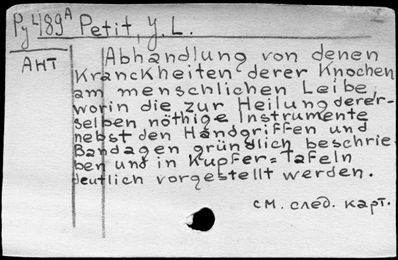 Ру489А Petit, J. L.
АНТ
Abhandlung von denen
Kranckheiten derer Knochen
am menschlichen Leibe,
worin die zur Heilung derer-
selben nöthige Instrumente
nebst den Handgriffen und
Bandagen gründlich beschrie-
ben und in Kupfer=Tafeln
deutlich vorgestellt werden.
см. след. карт.